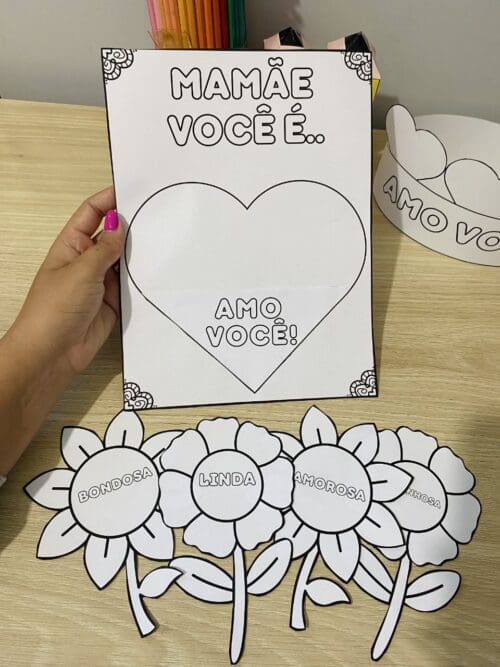 MAMÃE
VOCÊ É..
AMO
VOCÊ!
AMO VO
BONDOSA
LINDA
AMOROSA